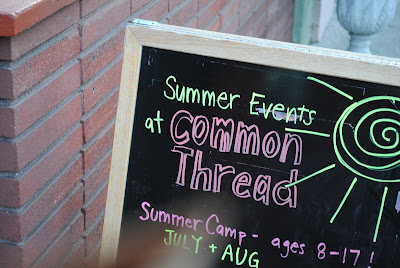 Summer Events
at Common
Thread
Summer Camp - ages 8-17!
JULY + AUG